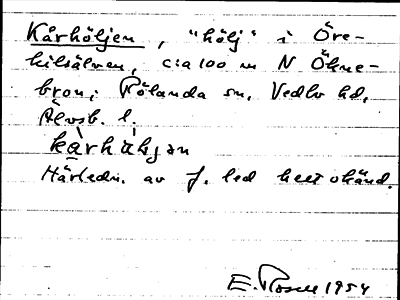 Kårhöljen, "hölj" i Öre-
kilsälven, c:a 100 m N Öhne-
bron; Rölanda sn, Vedbo hd,
Älvsb. l.
kàrhàljən
Härledn. av f. led helt okänd.
E. Rosell 1954